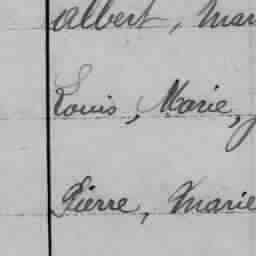 Albert, Mar
Louis, Marie,
Pierre, Marie